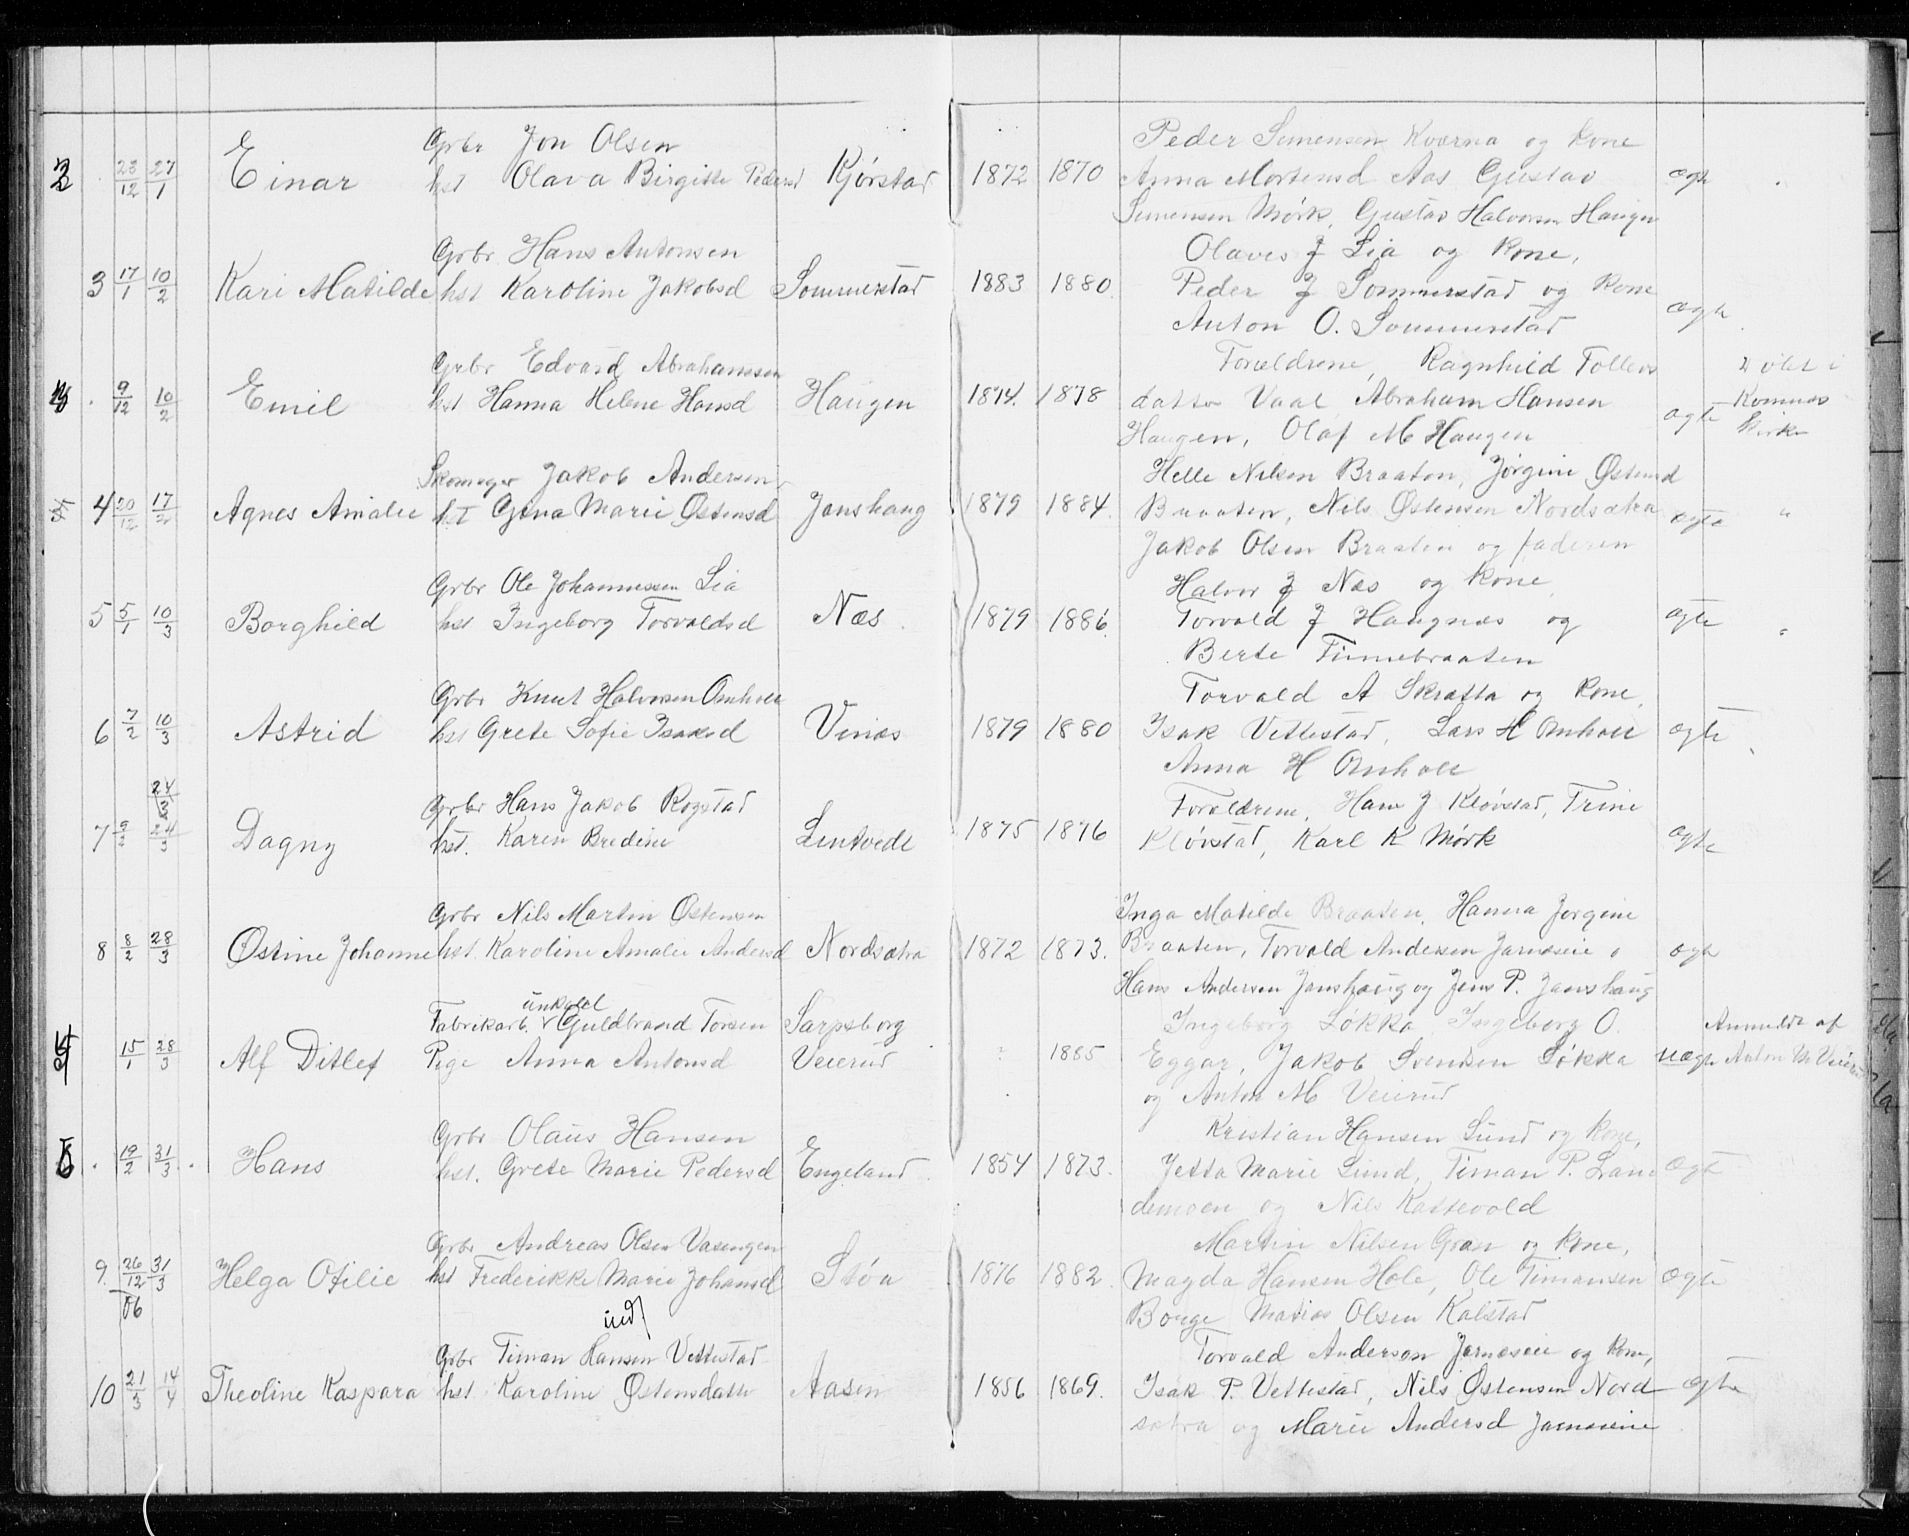 Peder Simensen Kværna og kone
Grbr Jon Olsen
2 23/12 27/1 Einar hst Olava Birgitte Pedersd Kjørstad 1872 1870 Anna Mortensd Aas Gustav ægte
Simensen Mørk, Gustav Halvorsen Haugen
Grbr Hans Antonsen Olaves J Lia og kone,
3 17/1 10/2 Kari Matilde hst Karoline Jakobsd Sommerstad 1883 1880 Peder J Sommerstad og kone ægte
Anton O. Sommerstad
Grbr Edvard Abrahamsen Forældrene, Ragnhild Tollevs
9/12 10/2 Emil hst Hanna Helene Hansd Haugen 1874. 1878 datter Vaal Abraham Hansen ægte Komnes
Haugen, Olaf M Haugen Kirke
Skomager Jakob Andersen Helle Nilsen Braaten, Jørgine Østensd
4 20/12 17/2 Agnes Amalie hst Gina Marie Østensd Janshaug 1879 1884. Braaten, Nils Østensen Nordsætra ægte "
Jakob Olsen Braaten og faderen
Grbr Ole Johannessen Lia Halvor J Næs og kone,
5 5/1 10/3 Borghild hst Ingeborg Torvaldsd Næs 1879 1886. Torvald J Haugnæs og ægte "
Berte Finnebraaten
Grbr Knut Halvorsen Omholt Torvald A Skratta og kone,
6 7/2 10/3 Astrid hst Grete Sofie Isaksd Vinæs 1879 1880 Isak Vettestad, Lars H Omholt ægte
Anna H Omholt
24/3
Grbr Hans Jakob Rogstad Forældrene, Hans J Kløvstad, Trine
7 9/2 24/3 Dagny hst. Karen Bredine Lintvedt 1875 1876 Kløvstad, Karl K Mørk ægte
Grbr Nils Martin Østensen Inga Matilde Braaten, Hanna Jørgine
8 8/2 28/3 Østine Johanne hst. Karoline Amalie Andersd Nordsætra 1872 1873. Braaten, Torvald Andersen Jarnæseie, ægte
Hans Andersen Janshaug og Jens P. Janshaug
unkarl
Fabrikarb. Guldbrand Torsen Sarpsborg Ingeborg Løkka, Ingeborg O. Anmeldt af
15/1 28/3 Alf Ditlef Pige Anna Antonsd Veierud ? 1885 Eggar, Jakob Svendsen Løkka uægte Anton M Veierud
og Anton M Veierud
Grbr Olaus Hansen Kristian Hansen Lund og kone,
19/2 31/3 Hans hst. Grete Marie Pedersd Engeland 1854 1873. Jetta Marie Lund, Timan P. Lan ægte
demoen og Nils Kattevold
Grbr Andreas Olsen Vasengen Martin Nilsen Gran og kone,
9. 26/12 31/3 Helga Otilie hst Frederikke Marie Johansd Støa 1876 1882. Magda Hansen Hole, Ole Timansen ægte
06 Bonge Matias Olsen Kalstad
ind
Grbr Timan Hansen Vettestad Torvald Andersen Jarnæseie og kone,
10 21/3 14/4 Theoline Kaspara hst. Karoline Østensdatter Aasen 1856 1869. Isak P. Vettestad, Nils Østensen Nord ægte
sætra og Marie Andersd Jarnæseie